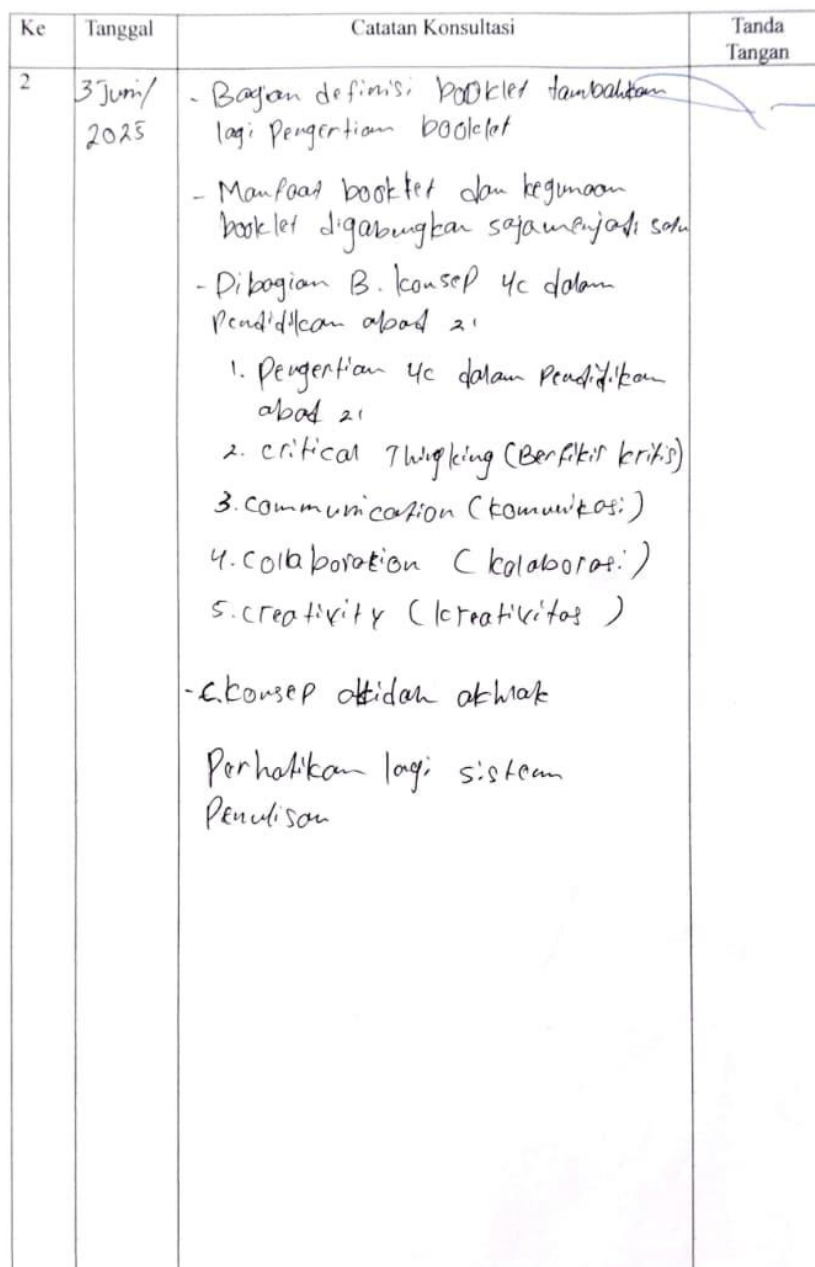 Ke Tanggal Catatan Konsultasi Tanda
Tangan
2 3 Juni/ - Bagian definisi booklet tambahkan
2025 lagi Pengertian booklet
- Manfaat booklet dan kegunaan
booklet digabungkan saja menjadi satu
- Dibagian B. konsep 4c dalam
Pendidikan abad 21
1. Pengertian 4c dalam Pendidikan
abad 21
2. critical Thingking (Berfikir kritis)
3. communication (komunikasi)
4. collaboration (kolaborasi)
5. creativity (kreativitas)
- C. konsep akidah akhlak
Perhatikan lagi sistem
Penulisan